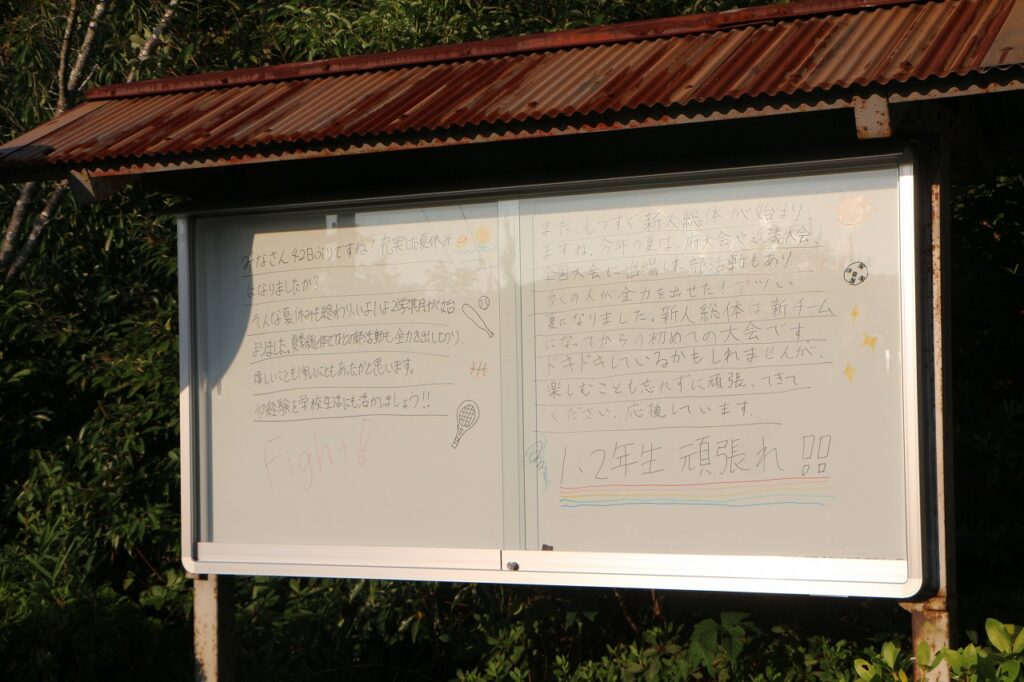 みなさん42日ぶりですね!充実した夏休み
になりましたか?
そんな夏休みも終わり、いよいよ2学期が始
まりました。夏季総体でどの部活動も、全力を出したり、
嬉しいことも悔しいこともあったかと思います。
その経験を学校生活にも活かしましょう!!
Fight!
また、もうすぐ新人総体が始まり
ますね。今年の夏は、府大会や近畿大会
全国大会に出場した部活動もあり
多くの人が全力を出せた!アツい
夏になりました。新人総体は、新チーム
になってからの初めての大会です。
ドキドキしているかもしれませんが、
楽しむことも忘れずに頑張ってきて
ください。応援しています。
1、2年生 頑張れ!!